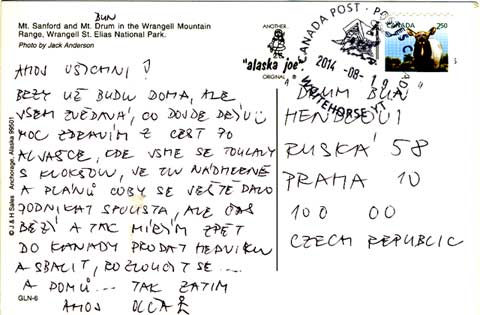 BUN
Mt. Sanford and Mt. Drum in the Wrangell Mountain
Range, Wrangell St. Elias National Park.
Photo by Jack Anderson
ANOTHER
"alaska joe"
ORIGINAL ®
CANADA POST · POSTES CANADA
2014-08-19
WHITEHORSE YT
CANADA 250
AHOJ VŠICHNI!
BRZY UŽ BUDU DOMA, ALE
VŠEM ZVĚDAVÁ, CO DOJDE DŘÍV :)
MOC ZDRAVÍM Z CEST PO
ALJAŠCE, KDE JSME SE TOULALY
S KLOKTOU, JE TU NÁDHERNĚ
A PLÁNŮ COBY SE JEŠTĚ DALO
PODNIKAT SPOUSTA, ALE ČAS
BĚŽÍ A TAK MÍŘÍM ZPĚT
DO KANADY PRODAT HEDVIKU
A SBALIT, ROZLOUČIT SE...
A DOMŮ... TAK ZATÍM
AHOJ OLČA
DRUM BUN
HENDLOVI
RUSKÁ 58
PRAHA 10
100 00
CZECH REPUBLIC
© J & H Sales Anchorage, Alaska 99501
GLN-6